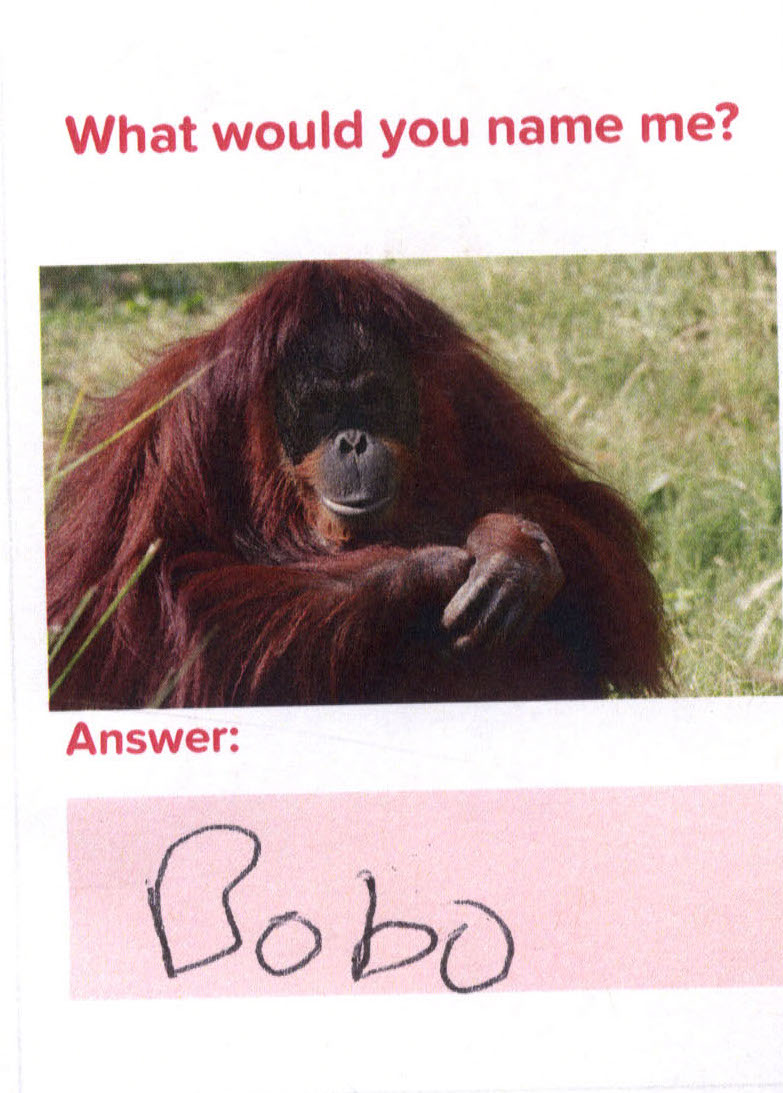 What would you name me?
Answer:
Bobo